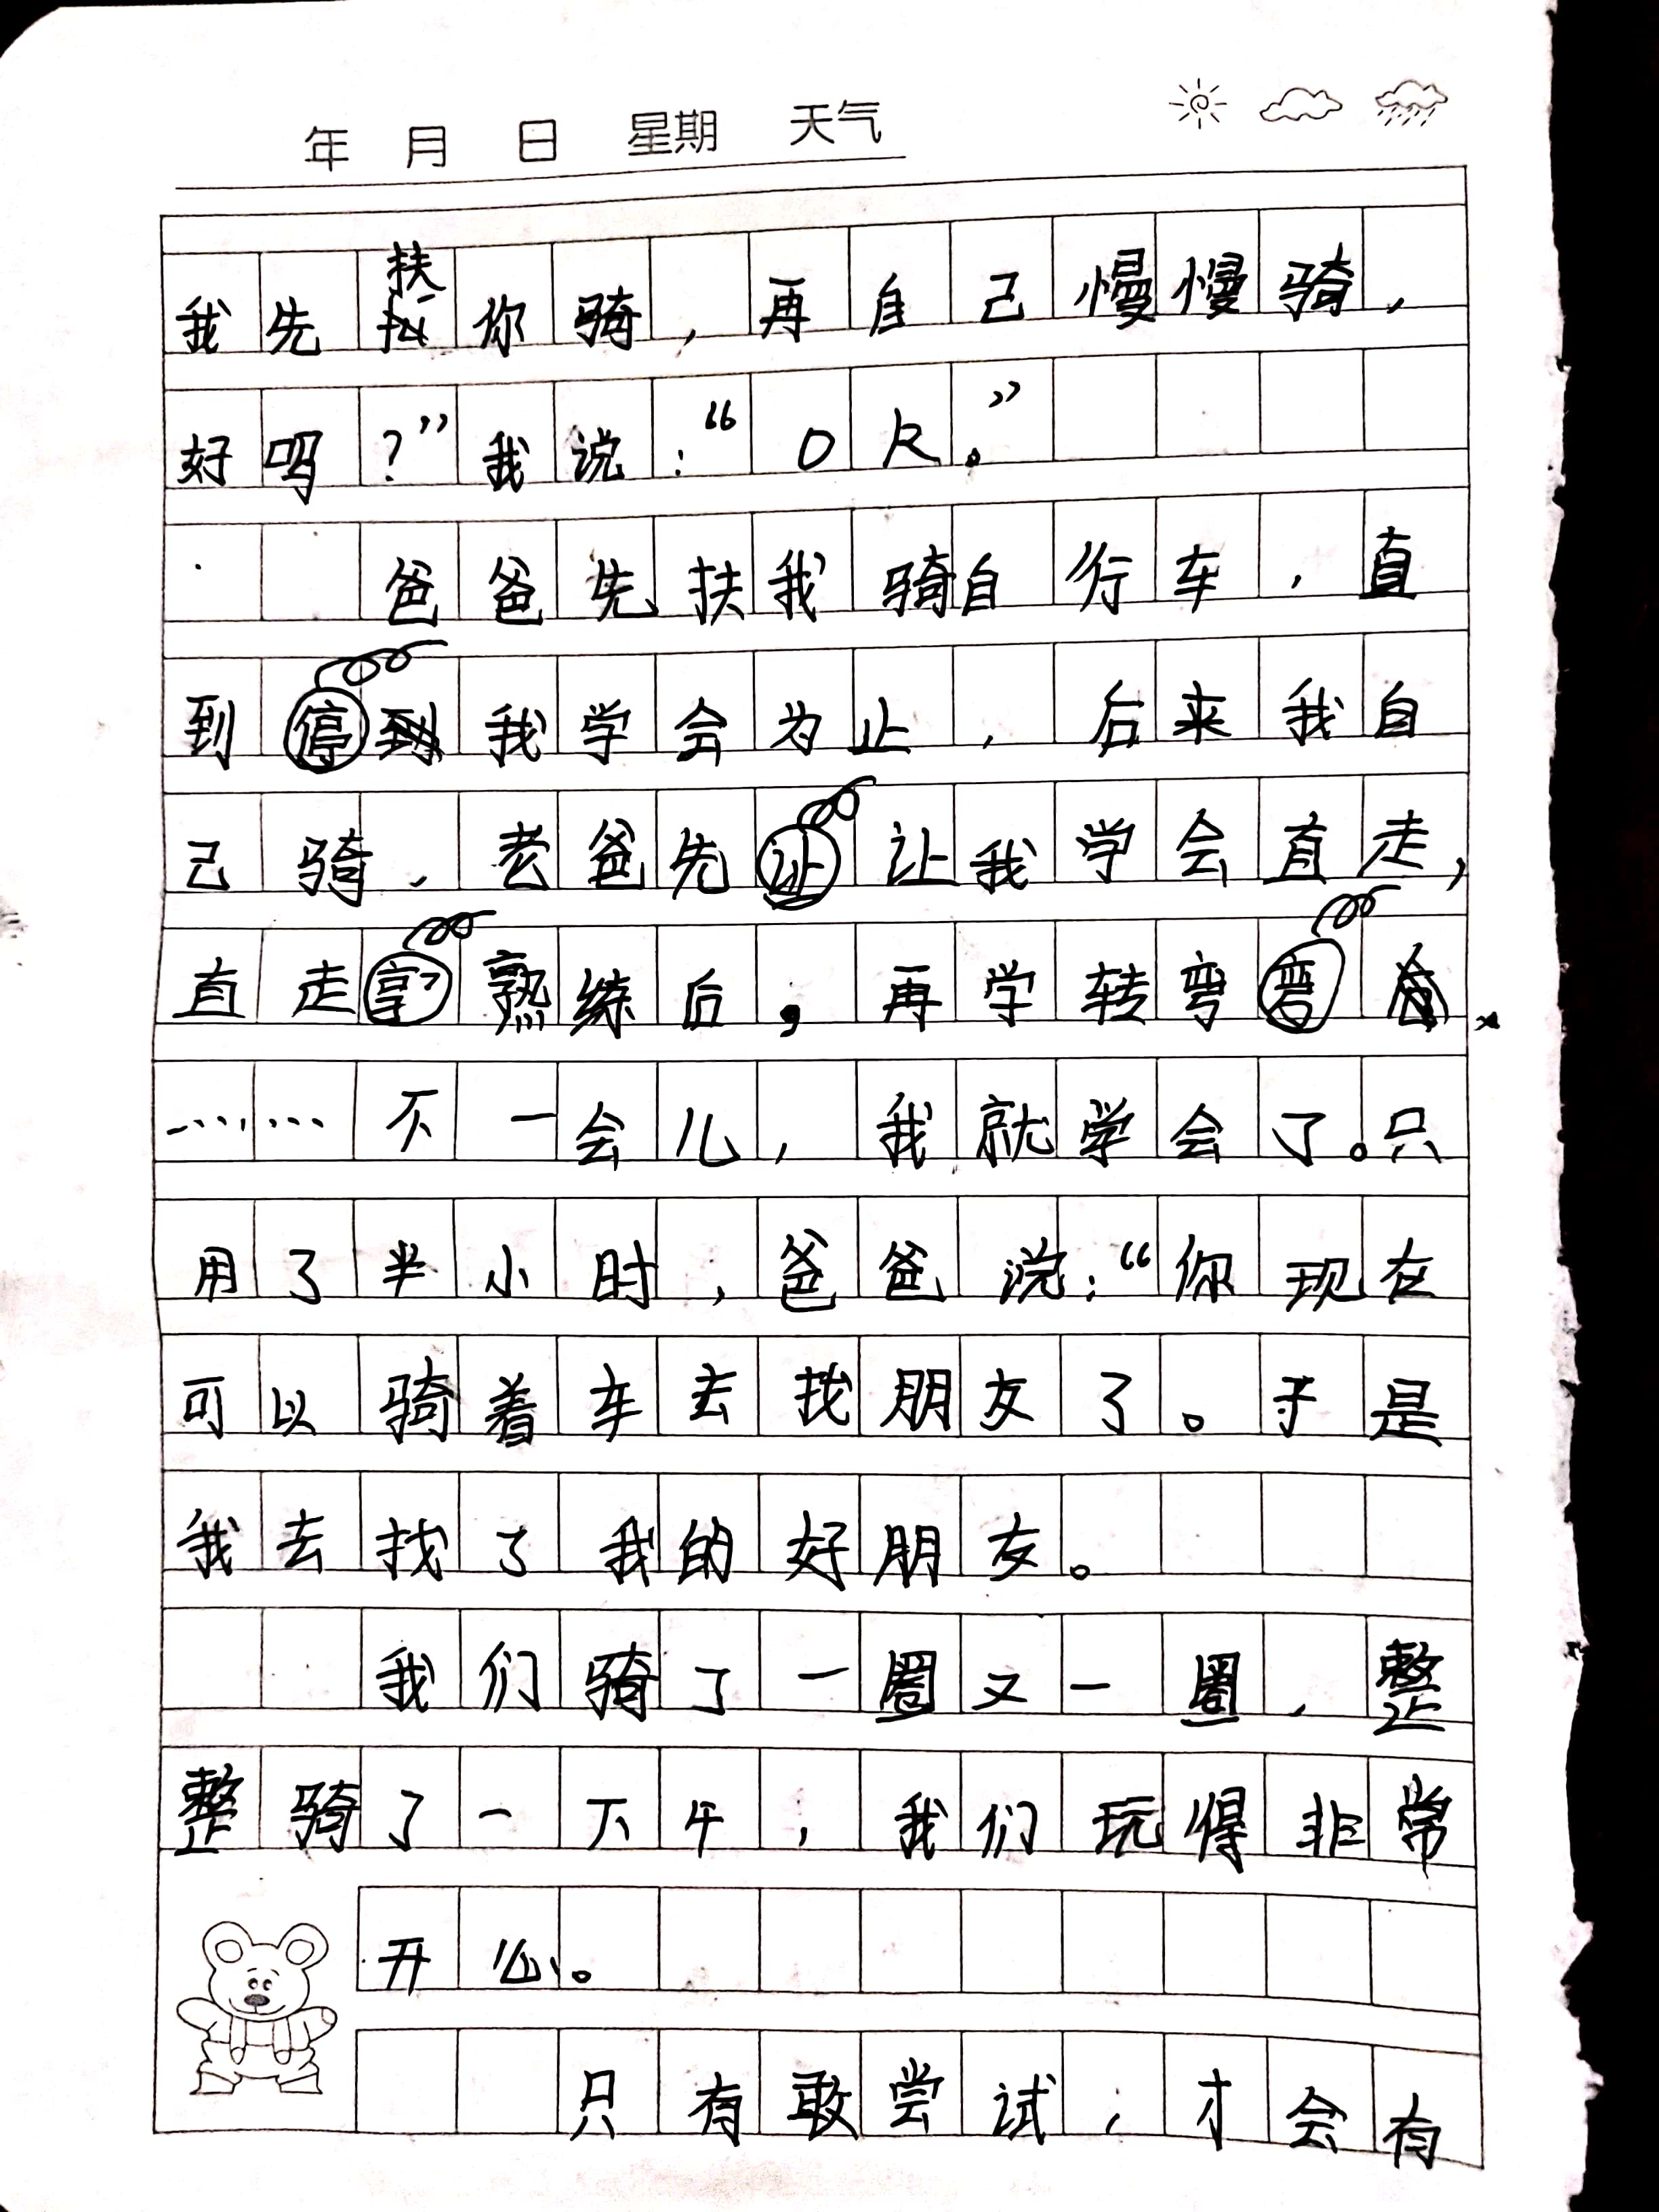 年 月 日 星期 天气
我先扶你骑，再自己慢慢骑，
好吗？”我说：“OK。”
爸爸先扶我骑自行车，直
到我学会为止，后来我自
己骑，老爸先让我学会直走，
直走熟练后，再学转弯
……不一会儿，我就学会了。只
用了半小时，爸爸说：“你现在
可以骑着车去找朋友了。于是
我去找了我的好朋友。
我们骑了一圈又一圈，整
整骑了一下午，我们玩得非常
开心。
只有敢尝试，才会有